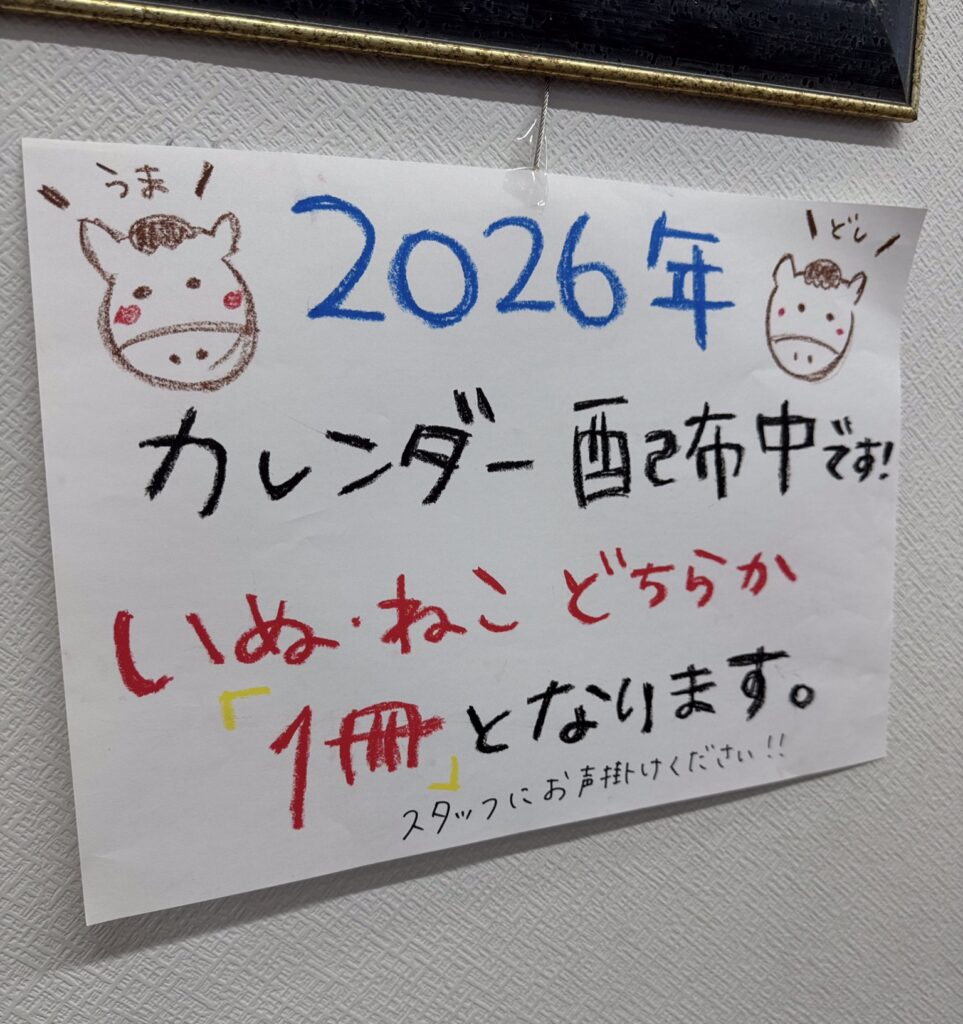 うま
2026年
どし
カレンダー配布中です!
いぬ・ねこ どちらか
「1冊」となります。
スタッフにお声掛けください!!